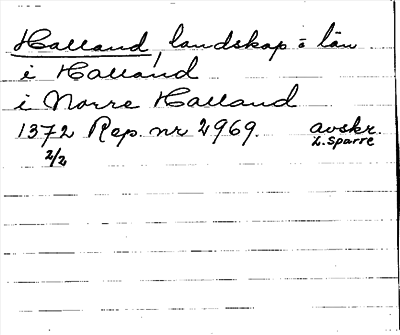 Halland, landskap o län
i Halland
i Norre Halland
1372 Rep. nr 2969. avskr.
2/2 L. Sparre